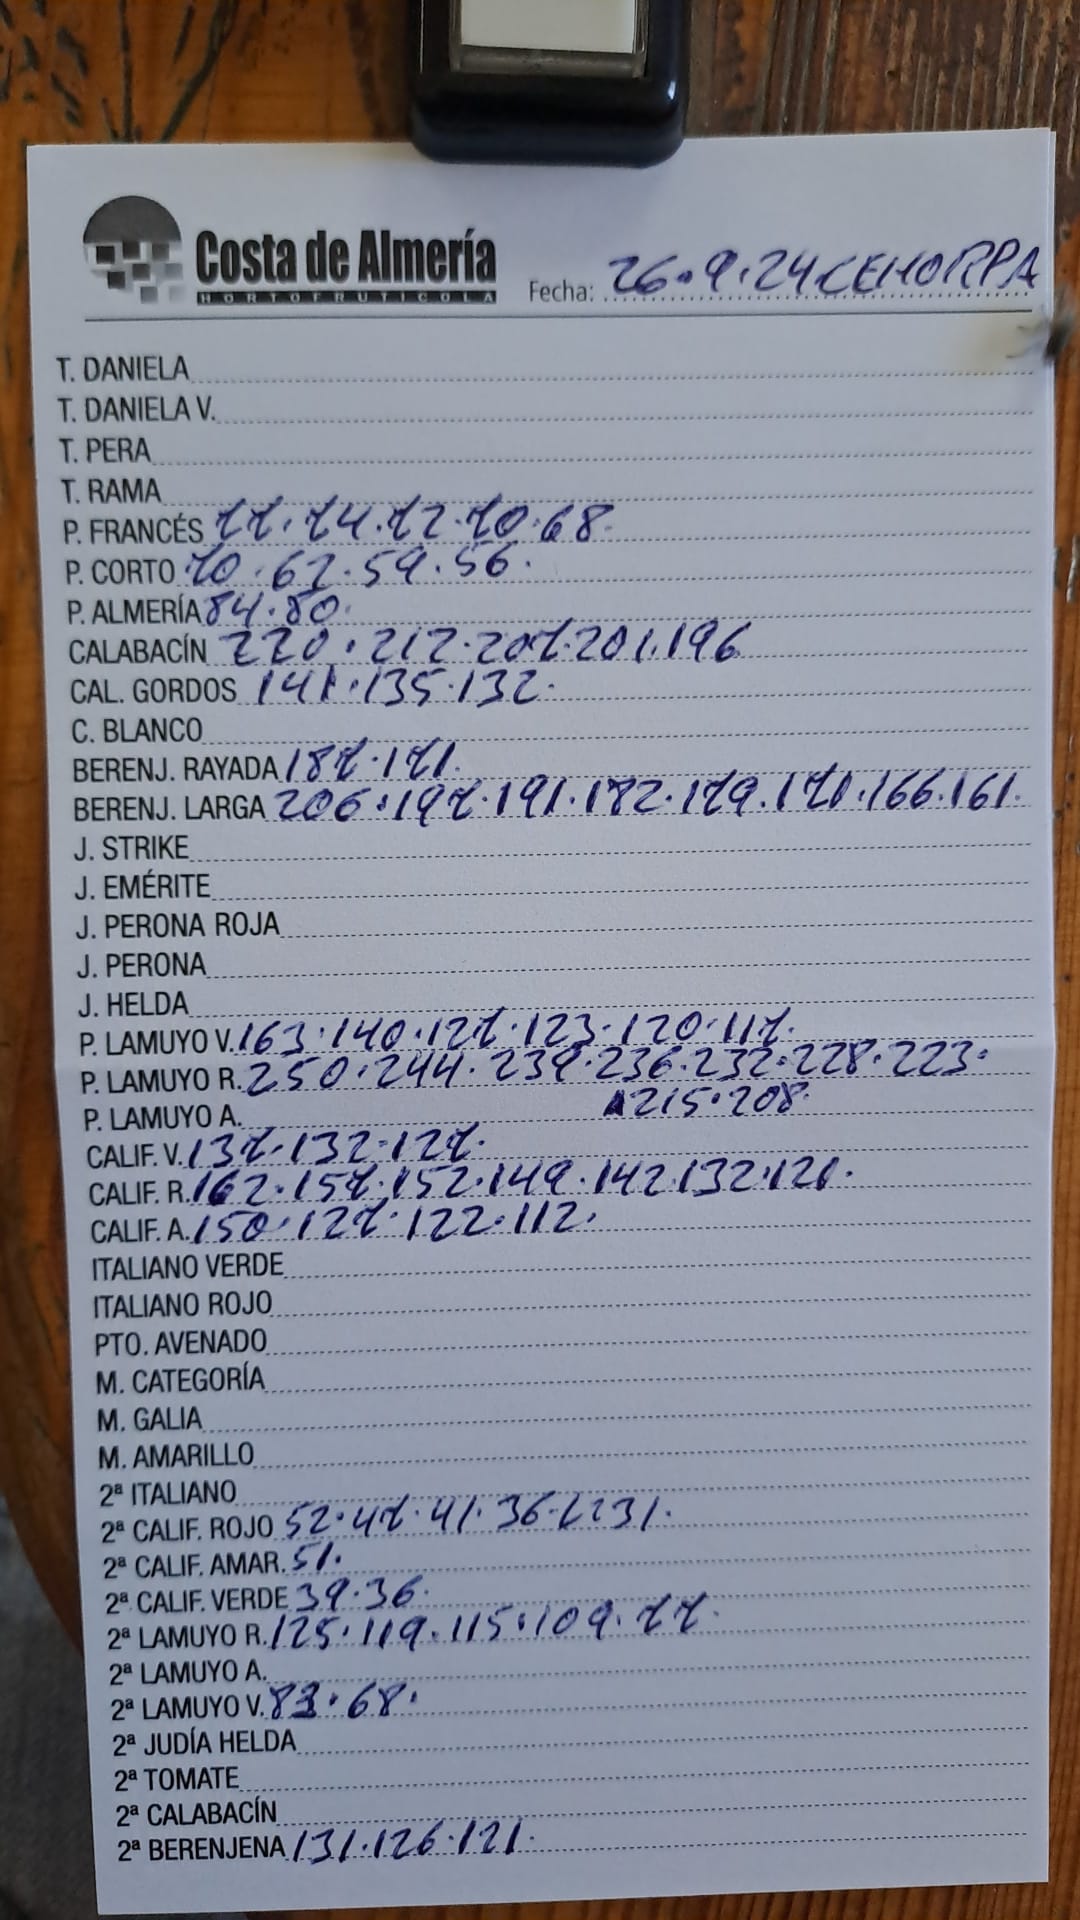 Costa de Almería
HORTOFRUTICOLA
Fecha: 26.9.24 CEHORPA
T. DANIELA
T. DANIELA V.
T. PERA
T. RAMA
P. FRANCÉS 77.74.72.70.68.
P. CORTO 70.62.59.56.
P. ALMERÍA 84.80.
CALABACÍN 220.212.207.201.196
CAL. GORDOS 141.135.132.
C. BLANCO
BERENJ. RAYADA 187.171.
BERENJ. LARGA 206.197.191.182.179.171.166.161.
J. STRIKE
J. EMÉRITE
J. PERONA ROJA
J. PERONA
J. HELDA
P. LAMUYO V. 163.140.127.123.120.117.
P. LAMUYO R. 250.244.239.236.232.228.223.
P. LAMUYO A. 215.208.
CALIF. V. 137.132.127.
CALIF. R. 162.157.152.149.142.132.121.
CALIF. A. 150.127.122.112.
ITALIANO VERDE
ITALIANO ROJO
PTO. AVENADO
M. CATEGORÍA
M. GALIA
M. AMARILLO
2ª ITALIANO
2ª CALIF. ROJO 52.47.41.36.31.
2ª CALIF. AMAR. 51.
2ª CALIF. VERDE 39.36.
2ª LAMUYO R. 125.119.115.109.77.
2ª LAMUYO A.
2ª LAMUYO V. 83.68.
2ª JUDÍA HELDA
2ª TOMATE
2ª CALABACÍN
2ª BERENJENA 131.126.121.